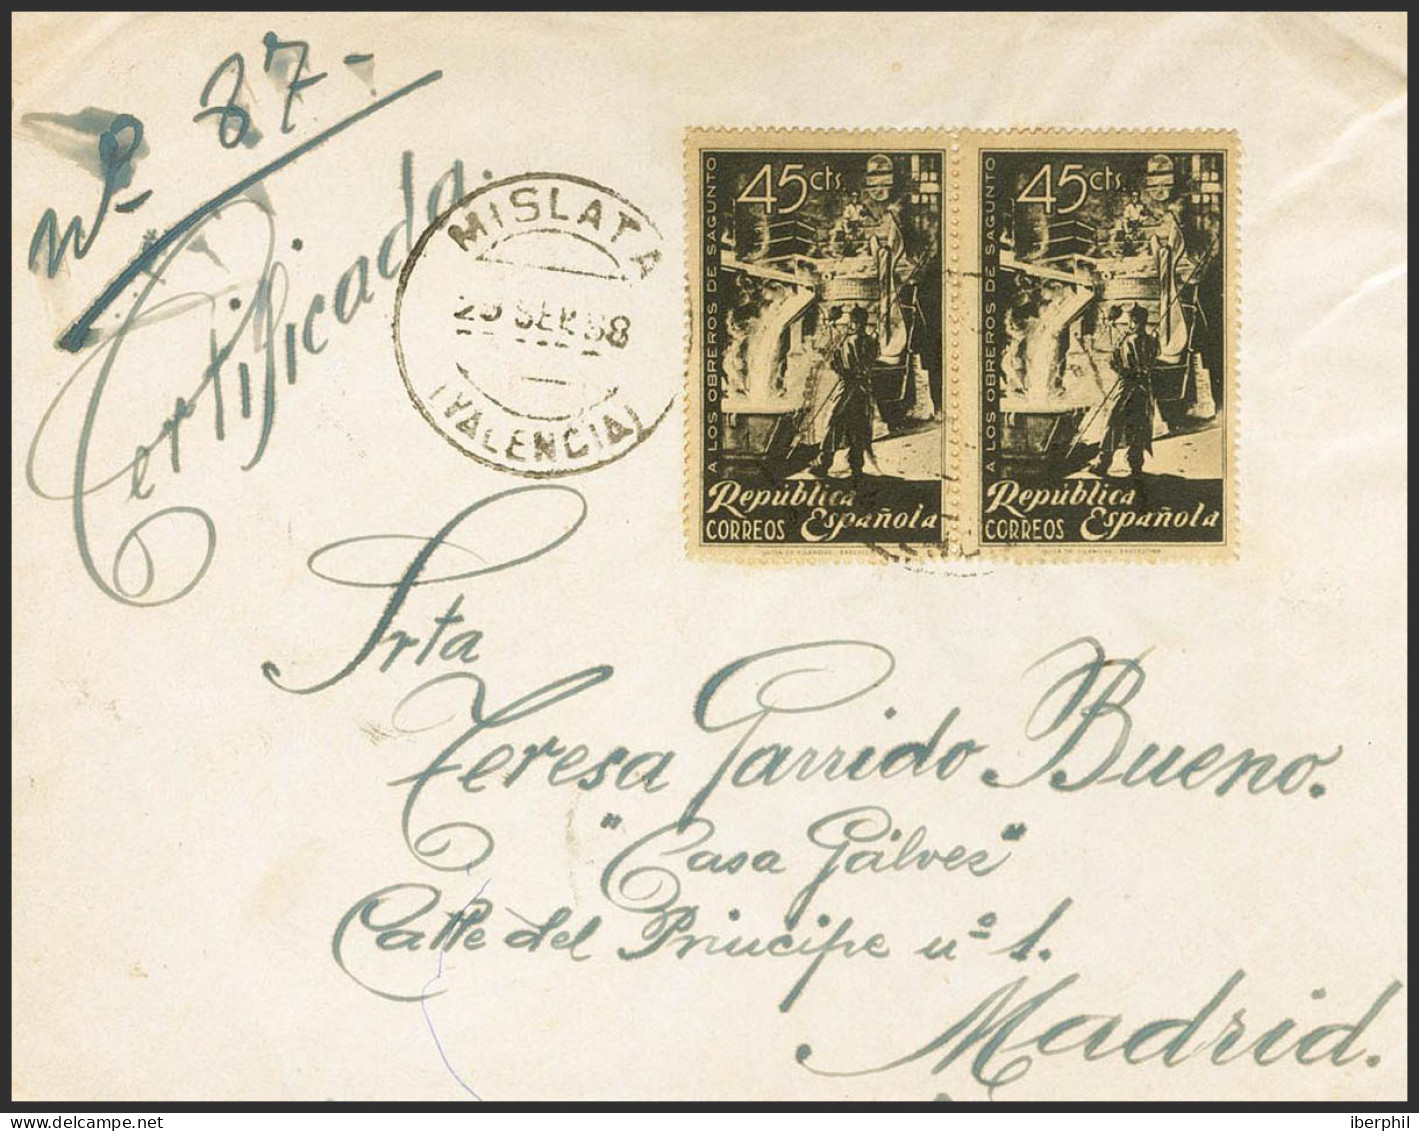 nº 87.-
Certificada.
MISLATA
SEP 38
(VALENCIA)
45 cts.
A LOS OBREROS DE SAGUNTO
República
Española
CORREOS
45 cts.
A LOS OBREROS DE SAGUNTO
República
Española
CORREOS
Srta
Teresa Garrido Bueno.
"Casa Gálvez"
Calle del Principe nº 1.
Madrid.
delcampe.net
iberphil